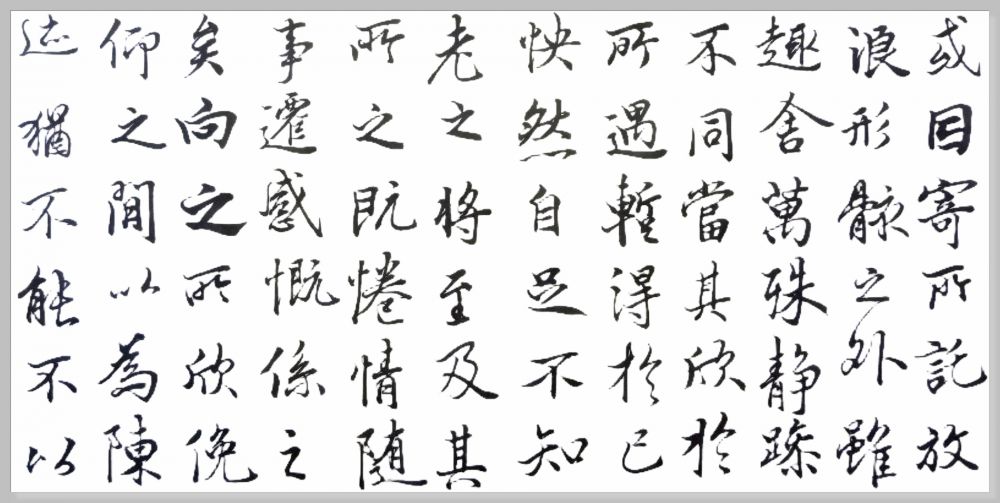 或因寄所託放
浪形骸之外雖
趣舍萬殊静躁
不同當其欣於
所遇暫得於己
快然自足不知
老之將至及其
所之既惓情随
事遷感慨係之
矣向之所欣俛
仰之間以為陳
迹猶不能不以